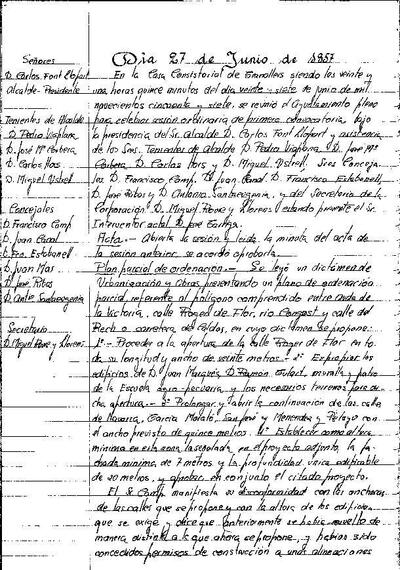 Señores
D. Carlos Font Llopart
Alcalde-Presidente
Tenientes de Alcalde
D. Pedro Viaplana
D. José Mª Corbera
D. Carlos
D. Miguel Ustrell
Concejales
D. Francisco Comp.
D. Juan Canal
D. Fco. Estabanell
D. Juan Mas
D. José Ribas
D. Antº
Secretario
D. Miguel Roure y Llorens
Dia 27 de Junio de 1957
En la Casa Consistorial de Granollers siendo las veinte y
una horas quince minutos del dia veinte y siete de junio de mil
novecientos cincuenta y siete, se reunió el Ayuntamiento pleno
para celebrar sesión ordinaria de primera convocatoria, bajo
la presidencia del Sr. Alcalde D. Carlos Font Llopart y asistencia
de los Sres. Tenientes de Alcalde D. Pedro Viaplana, D. José Mª
Corbera, D. Carlos y D. Miguel Ustrell. Sres Conceja-
les D. Francisco Comp. D. Juan Canal D. Francisco Estabanell,
D. José Ribas y D. Antonio y del Secretario de la
Corporación D. Miguel Roure y Llorens, estando presente el Sr.
Interventor actal D. José
Acta.- Abierta la sesión y leida la minuta del acta de
la sesión anterior, se acordo aprobarla.
Plan parcial de ordenación.- Se leyó un dictámen de
Urbanización y Obras presentando un plano de ordenación
parcial, referente al poligono comprendido entre Avda de
la Victoria, calle Roger de Flor, rio Congost y calle del
Rech o carretera de Caldas, en cuyo dictamen se propone:
1º- Proceder a la apertura de la calle Roger de Flor en to-
da su longitud y ancho de veinte metros. 2º Expropiar los
edificios de D. Juan Margués, D. Ramón muralla y patio
de la Escuela agro-pecuaria, y los necesarios terrenos para di-
cha apertura.- 3º Prolongar y abrir la continuación de las calles
de Navarra, Garcia Morato, San José y Menendez y Pelayo con
el ancho previsto de quince metros. 4º Establecer como altura
minima en esta zona, la señalada en el proyecto adjunto, la fa-
chada minima de 7 metros y la profundidad unica edificable
de 20 metros, y aprobar, en conjunto el citado proyecto.
El Sr. Comp. manifiesta su disconformidad con las anchuras
de las calles que se propone y con la altura de los edificios
que se exige, y dice que anteriormente se habia resuelto de
manera distinta a lo que ahora se propone, y habian sido
concedidos permisos de construcción a unas alineaciones